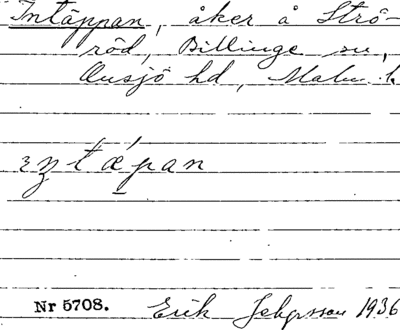 Intäppan, åker å Strö-
röd, Billinge sn,
Onsjö hd, Malm. l.
Nr 5708. Erik 1936